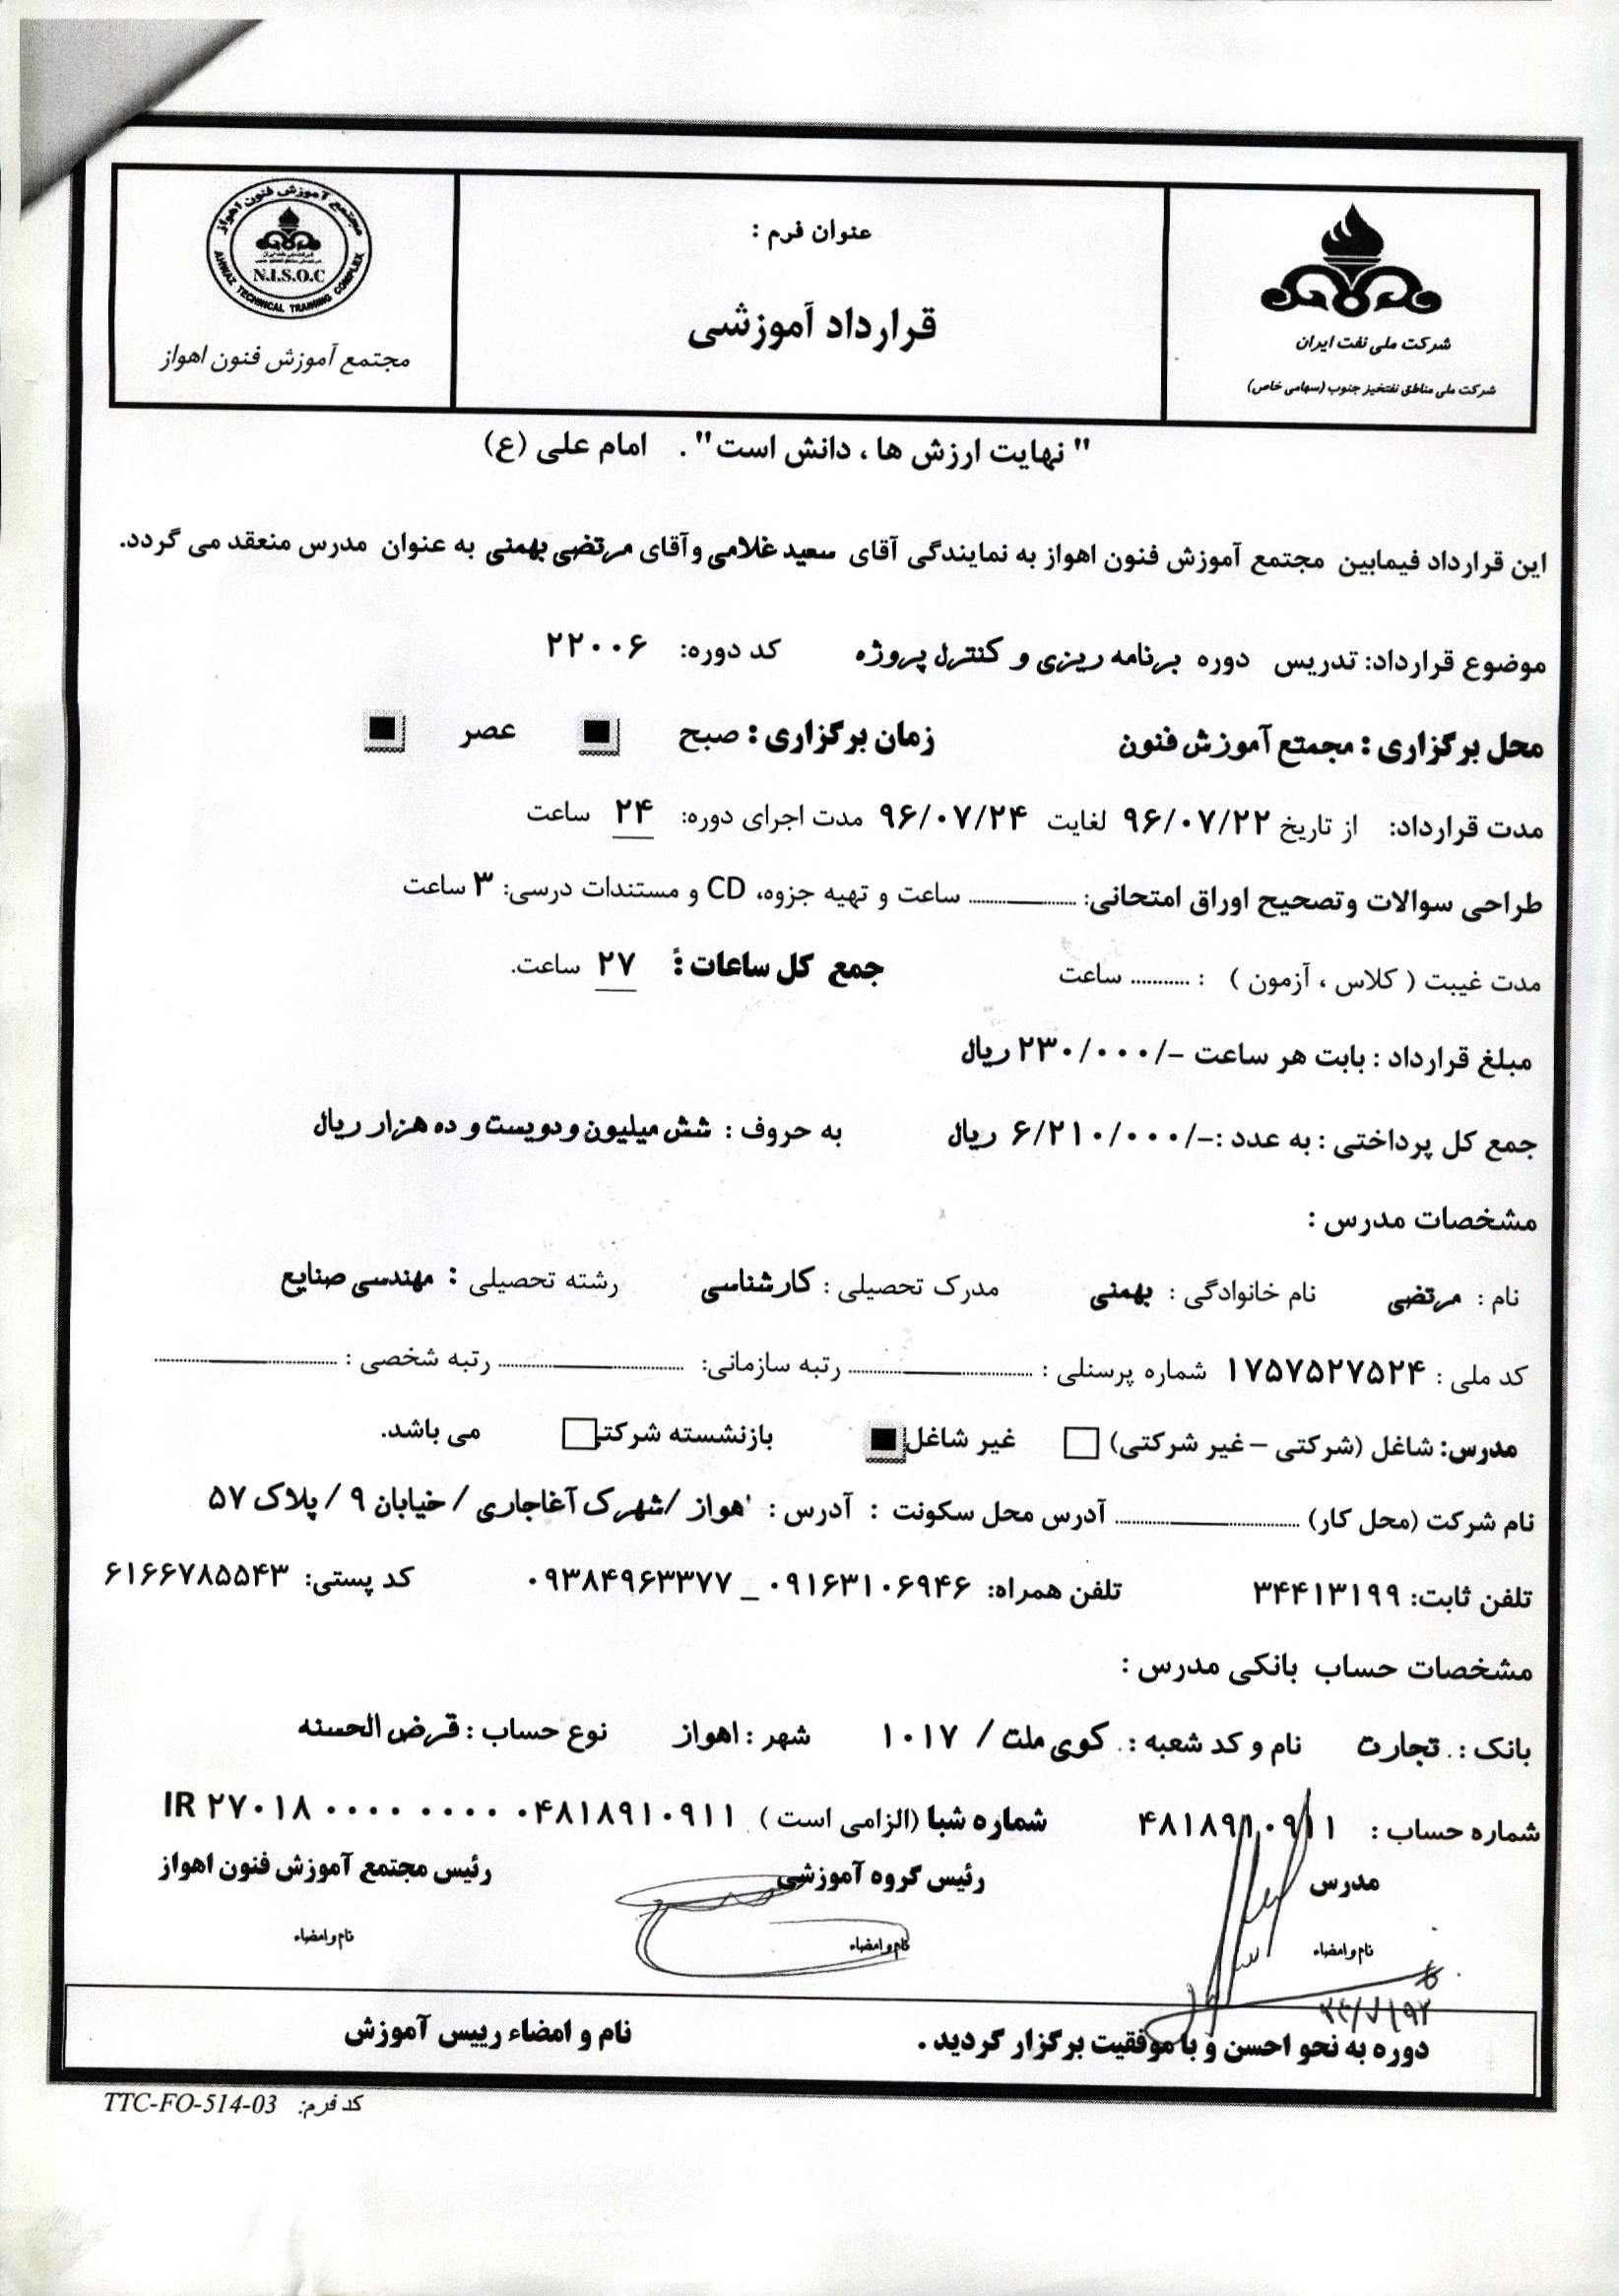 مجتمع آموزش فنون اهواز
N.I.S.O.C
AHWAZ TECHNICAL TRAINING COMPLEX
مجتمع آموزش فنون اهواز
عنوان فرم :
قرارداد آموزشی
شرکت ملی نفت ایران
شرکت ملی مناطق نفتخیز جنوب (سهامی خاص)
" نهایت ارزش ها ، دانش است" . امام علی (ع)
این قرارداد فیمابین مجتمع آموزش فنون اهواز به نمایندگی آقای سعید غلامی و آقای مرتضی بهمنی به عنوان مدرس منعقد می گردد.
موضوع قرارداد: تدریس دوره برنامه ریزی و کنترل پروژه کد دوره: ۲۲۰۰۶
محل برگزاری : مجمتع آموزش فنون زمان برگزاری : صبح ■ عصر ■
مدت قرارداد: از تاریخ ۹۶/۰۷/۲۲ لغایت ۹۶/۰۷/۲۴ مدت اجرای دوره: ۲۴ ساعت
طراحی سوالات وتصحیح اوراق امتحانی: .......... ساعت و تهیه جزوه، CD و مستندات درسی: ۳ ساعت
مدت غیبت ( کلاس ، آزمون ) : .......... ساعت جمع کل ساعات : ۲۷ ساعت.
مبلغ قرارداد : بابت هر ساعت -/۲۳۰/۰۰۰ ریال
جمع کل پرداختی : به عدد :-/۶/۲۱۰/۰۰۰ ریال به حروف : شش میلیون و دویست و ده هزار ریال
مشخصات مدرس :
نام : مرتضی نام خانوادگی : بهمنی مدرک تحصیلی : کارشناسی رشته تحصیلی : مهندسی صنایع
کد ملی : ۱۷۵۷۵۲۷۵۲۴ شماره پرسنلی : .......... رتبه سازمانی: .......... رتبه شخصی : ..........
مدرس: شاغل (شرکتی – غیر شرکتی) □ غیر شاغل ■ بازنشسته شرکتی □ می باشد.
نام شرکت (محل کار) .......... آدرس محل سکونت : آدرس : اهواز /شهرک آغاجاری / خیابان ۹ / پلاک ۵۷
تلفن ثابت: ۳۴۴۱۳۱۹۹ تلفن همراه: ۰۹۱۶۳۱۰۶۹۴۶ _ ۰۹۳۸۴۹۶۳۳۷۷ کد پستی: ۶۱۶۶۷۸۵۵۴۳
مشخصات حساب بانکی مدرس :
بانک : . تجارت نام و کد شعبه : . کوی ملت / ۱۰۱۷ شهر : اهواز نوع حساب : قرض الحسنه
شماره حساب : ۴۸۱۸۹۱۰۹۱۱ شماره شبا (الزامی است ) IR ۲۷۰۱۸ ۰۰۰۰ ۰۰۰۰ ۰۴۸۱۸۹۱۰۹۱۱
مدرس رئیس گروه آموزشی رئیس مجتمع آموزش فنون اهواز
نام و امضاء نام و امضاء نام و امضاء
دوره به نحو احسن و با موفقیت برگزار گردید . نام و امضاء رییس آموزش
کد فرم: TTC-FO-514-03